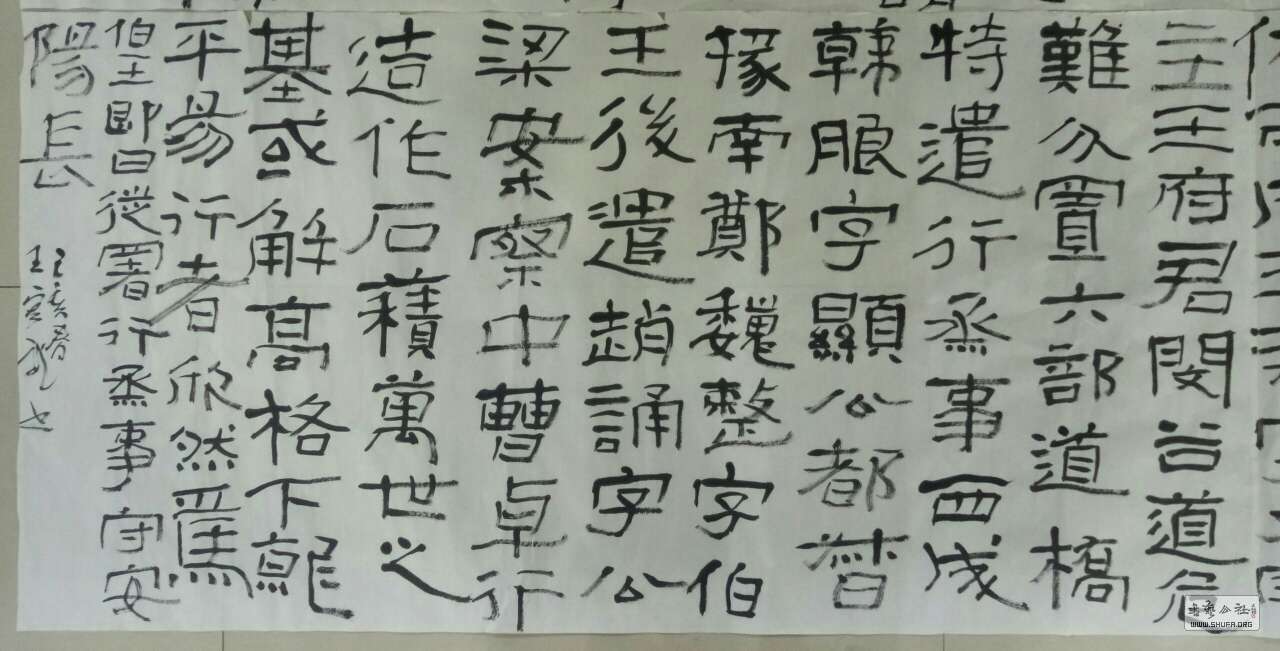 主王府君閔谷道危
難分置六部道橋
特遣行丞事西成
韓朖字顯公都督
掾南鄭魏整字伯
王後遣趙誦字公
梁案察中曹卓行
造作石積萬世之
基或解高格下就
平易行者欣然焉
伯王即日徙署行丞事守安
陽長
WWW.SHUFA.ORG